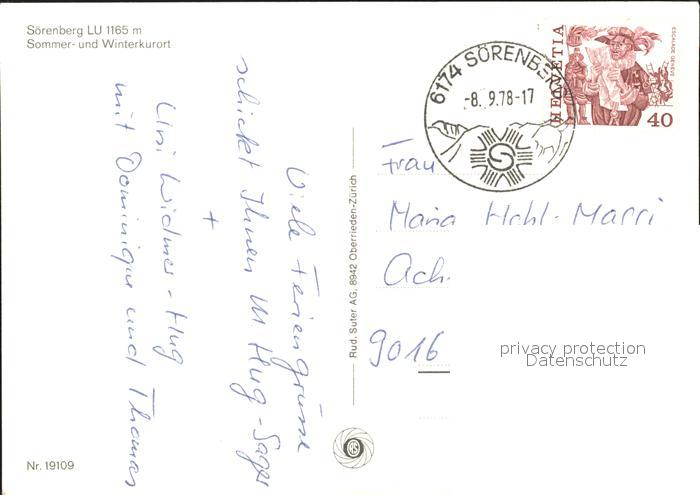 Sörenberg LU 1165 m
Sommer- und Winterkurort
6174 SÖRENBERG
-8. 9.78-17
HELVETIA
ESCALADE GENÈVE
40
Viele Feriengrüsse
schickt Ihnen M Hug-Sager
+
Uri Widmer-Hug
mit Dominique und Thomas
Rud. Suter AG, 8942 Oberrieden-Zürich
Frau
Maria
9016
privacy protection
Datenschutz
Nr. 19109